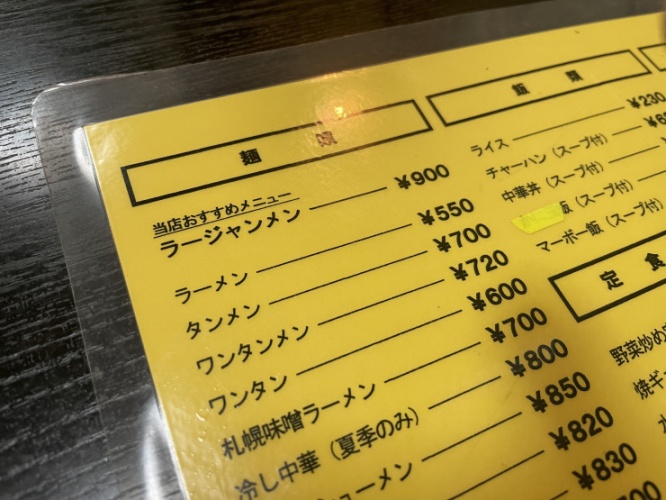 麺類
当店おすすめメニュー
ラージャンメン ¥900
ラーメン ¥550
タンメン ¥700
ワンタンメン ¥720
ワンタン ¥600
札幌味噌ラーメン ¥700
冷し中華（夏季のみ） ¥800
ーメン ¥850
¥820
¥830
飯類
ライス ¥230
チャーハン（スープ付）
中華丼（スープ付）
飯（スープ付）
マーボー飯（スープ付）
定食
野菜炒め
焼ギョ